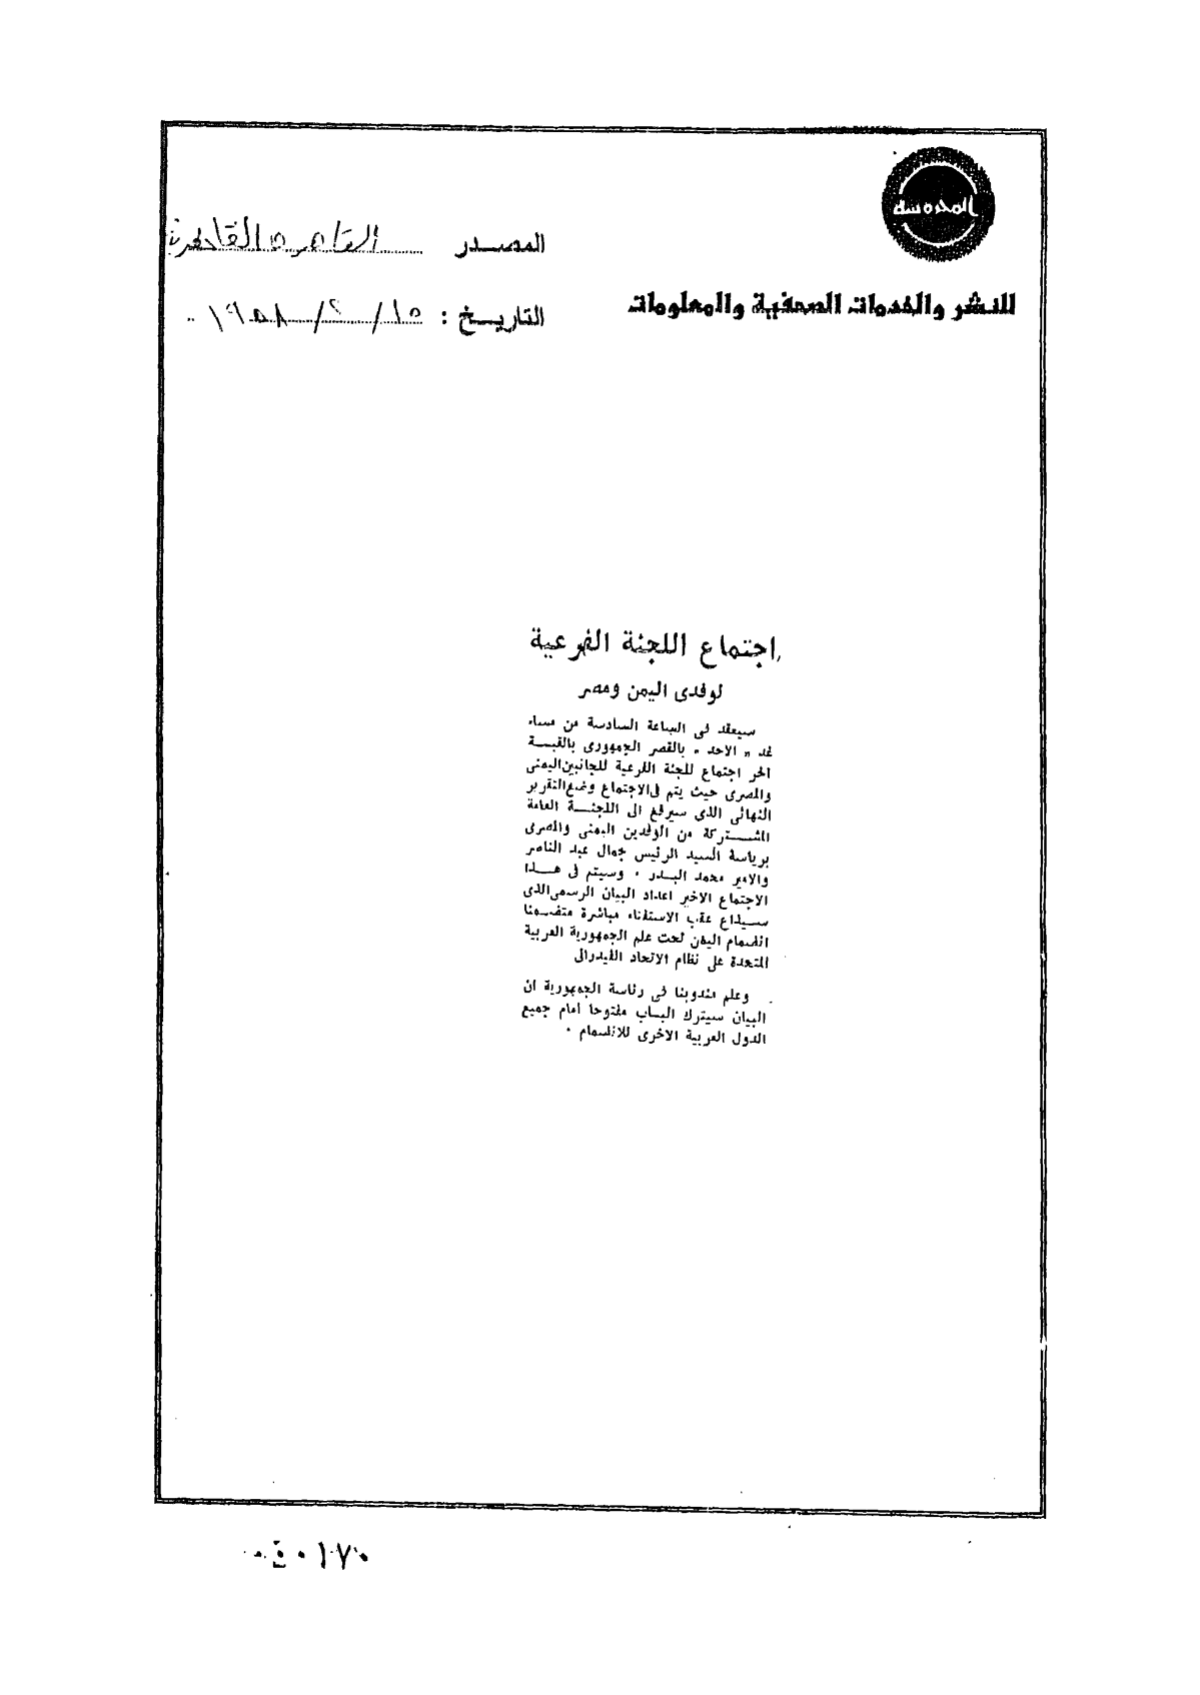 المحروسة
للنشر والخدمات الصحفية والمعلومات
المصدر القاهرة القاهرة
التاريخ : ١٥/ ٢/ ١٩٥٨
اجتماع اللجنة الفرعية
لوفدى اليمن ومصر
سيعقد فى الساعة السادسة من مساء
غد « الاحد » بالقصر الجمهورى بالقبة
الحر اجتماع للجنة الفرعية للجانبين اليمنى
والمصرى حيث يتم فى الاجتماع وضع التقرير
النهائى الذى سيرفع الى اللجنة العامة
المشتركة من الوفدين اليمنى والمصرى
برياسة السيد الرئيس جمال عبد الناصر
والامير محمد البدر . وسيتم فى هذا
الاجتماع الاخير اعداد البيان الرسمى الذى
سيذاع عقب الاستفتاء مباشرة متضمنا
انضمام اليمن تحت علم الجمهورية العربية
المتحدة على نظام الاتحاد الفيدرالى
وعلم مندوبنا فى رئاسة الجمهورية ان
البيان سيترك الباب مفتوحا امام جميع
الدول العربية الاخرى للانضمام .